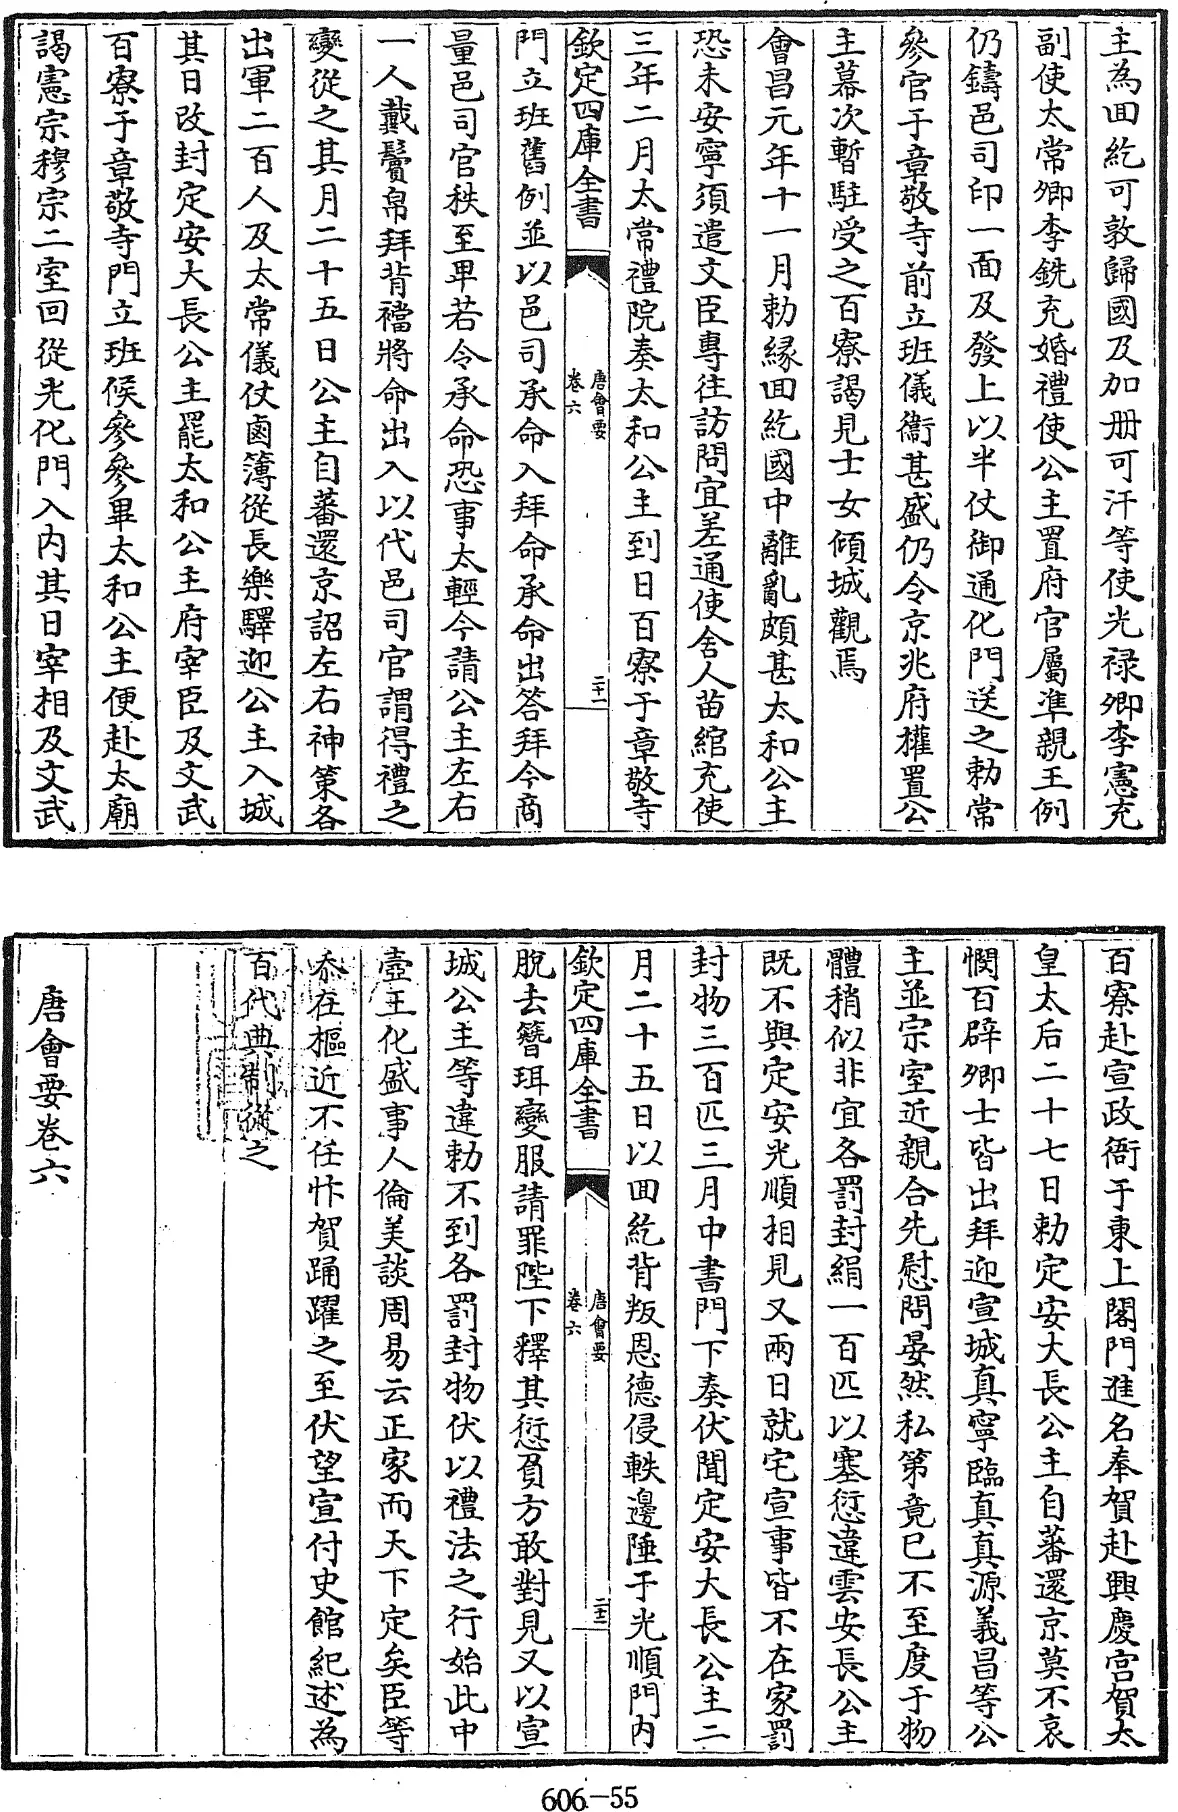 主為回紇可敦歸國及加冊可汗等使光祿卿李憲充
副使太常卿李銑充婚禮使公主置府官屬準親王例
仍鑄邑司印一面及發上以半仗御通化門送之勅常
參官于章敬寺前立班儀衞甚盛仍令京兆府權置公
主幕次暫駐受之百寮謁見士女傾城觀焉
會昌元年十一月勅緣回紇國中離亂頗甚太和公主
恐未安寧須遣文臣專往訪問宜差通使舍人苗綰充使
三年二月太常禮院奏太和公主到日百寮于章敬寺
欽定四庫全書
唐會要
卷六
二十一
門立班舊例並以邑司承命入拜命承命出答拜今商
量邑司官秩至卑若令承命恐事太輕今請公主左右
一人戴鬢帛拜背襠將命出入以代邑司官謂得禮之
變從之其月二十五日公主自蕃還京詔左右神策各
出軍二百人及太常儀仗鹵簿從長樂驛迎公主入城
其日改封定安大長公主罷太和公主府宰臣及文武
百寮于章敬寺門立班候參參畢太和公主便赴太廟
謁憲宗穆宗二室回從光化門入內其日宰相及文武
百寮赴宣政衙于東上閤門進名奉賀赴興慶宮賀太
皇太后二十七日勅定安大長公主自蕃還京莫不哀
憫百辟卿士皆出拜迎宣城真寧臨真真源義昌等公
主並宗室近親合先慰問晏然私第竟已不至度于物
體稍似非宜各罰封絹一百匹以塞愆違雲安長公主
既不與定安光順相見又兩日就宅宣事皆不在家罰
封物三百匹三月中書門下奏伏聞定安大長公主二
月二十五日以回紇背叛恩德侵軼邊陲于光順門內
欽定四庫全書
唐會要
卷六
二十二
脫去簪珥變服請罪陛下釋其愆負方敢對見又以宣
城公主等違勅不到各罰封物伏以禮法之行始此中
壼王化盛事人倫美談周易云正家而天下定矣臣等
忝在樞近不任忭賀踊躍之至伏望宣付史館紀述為
百代典制從之
唐會要卷六
606-55